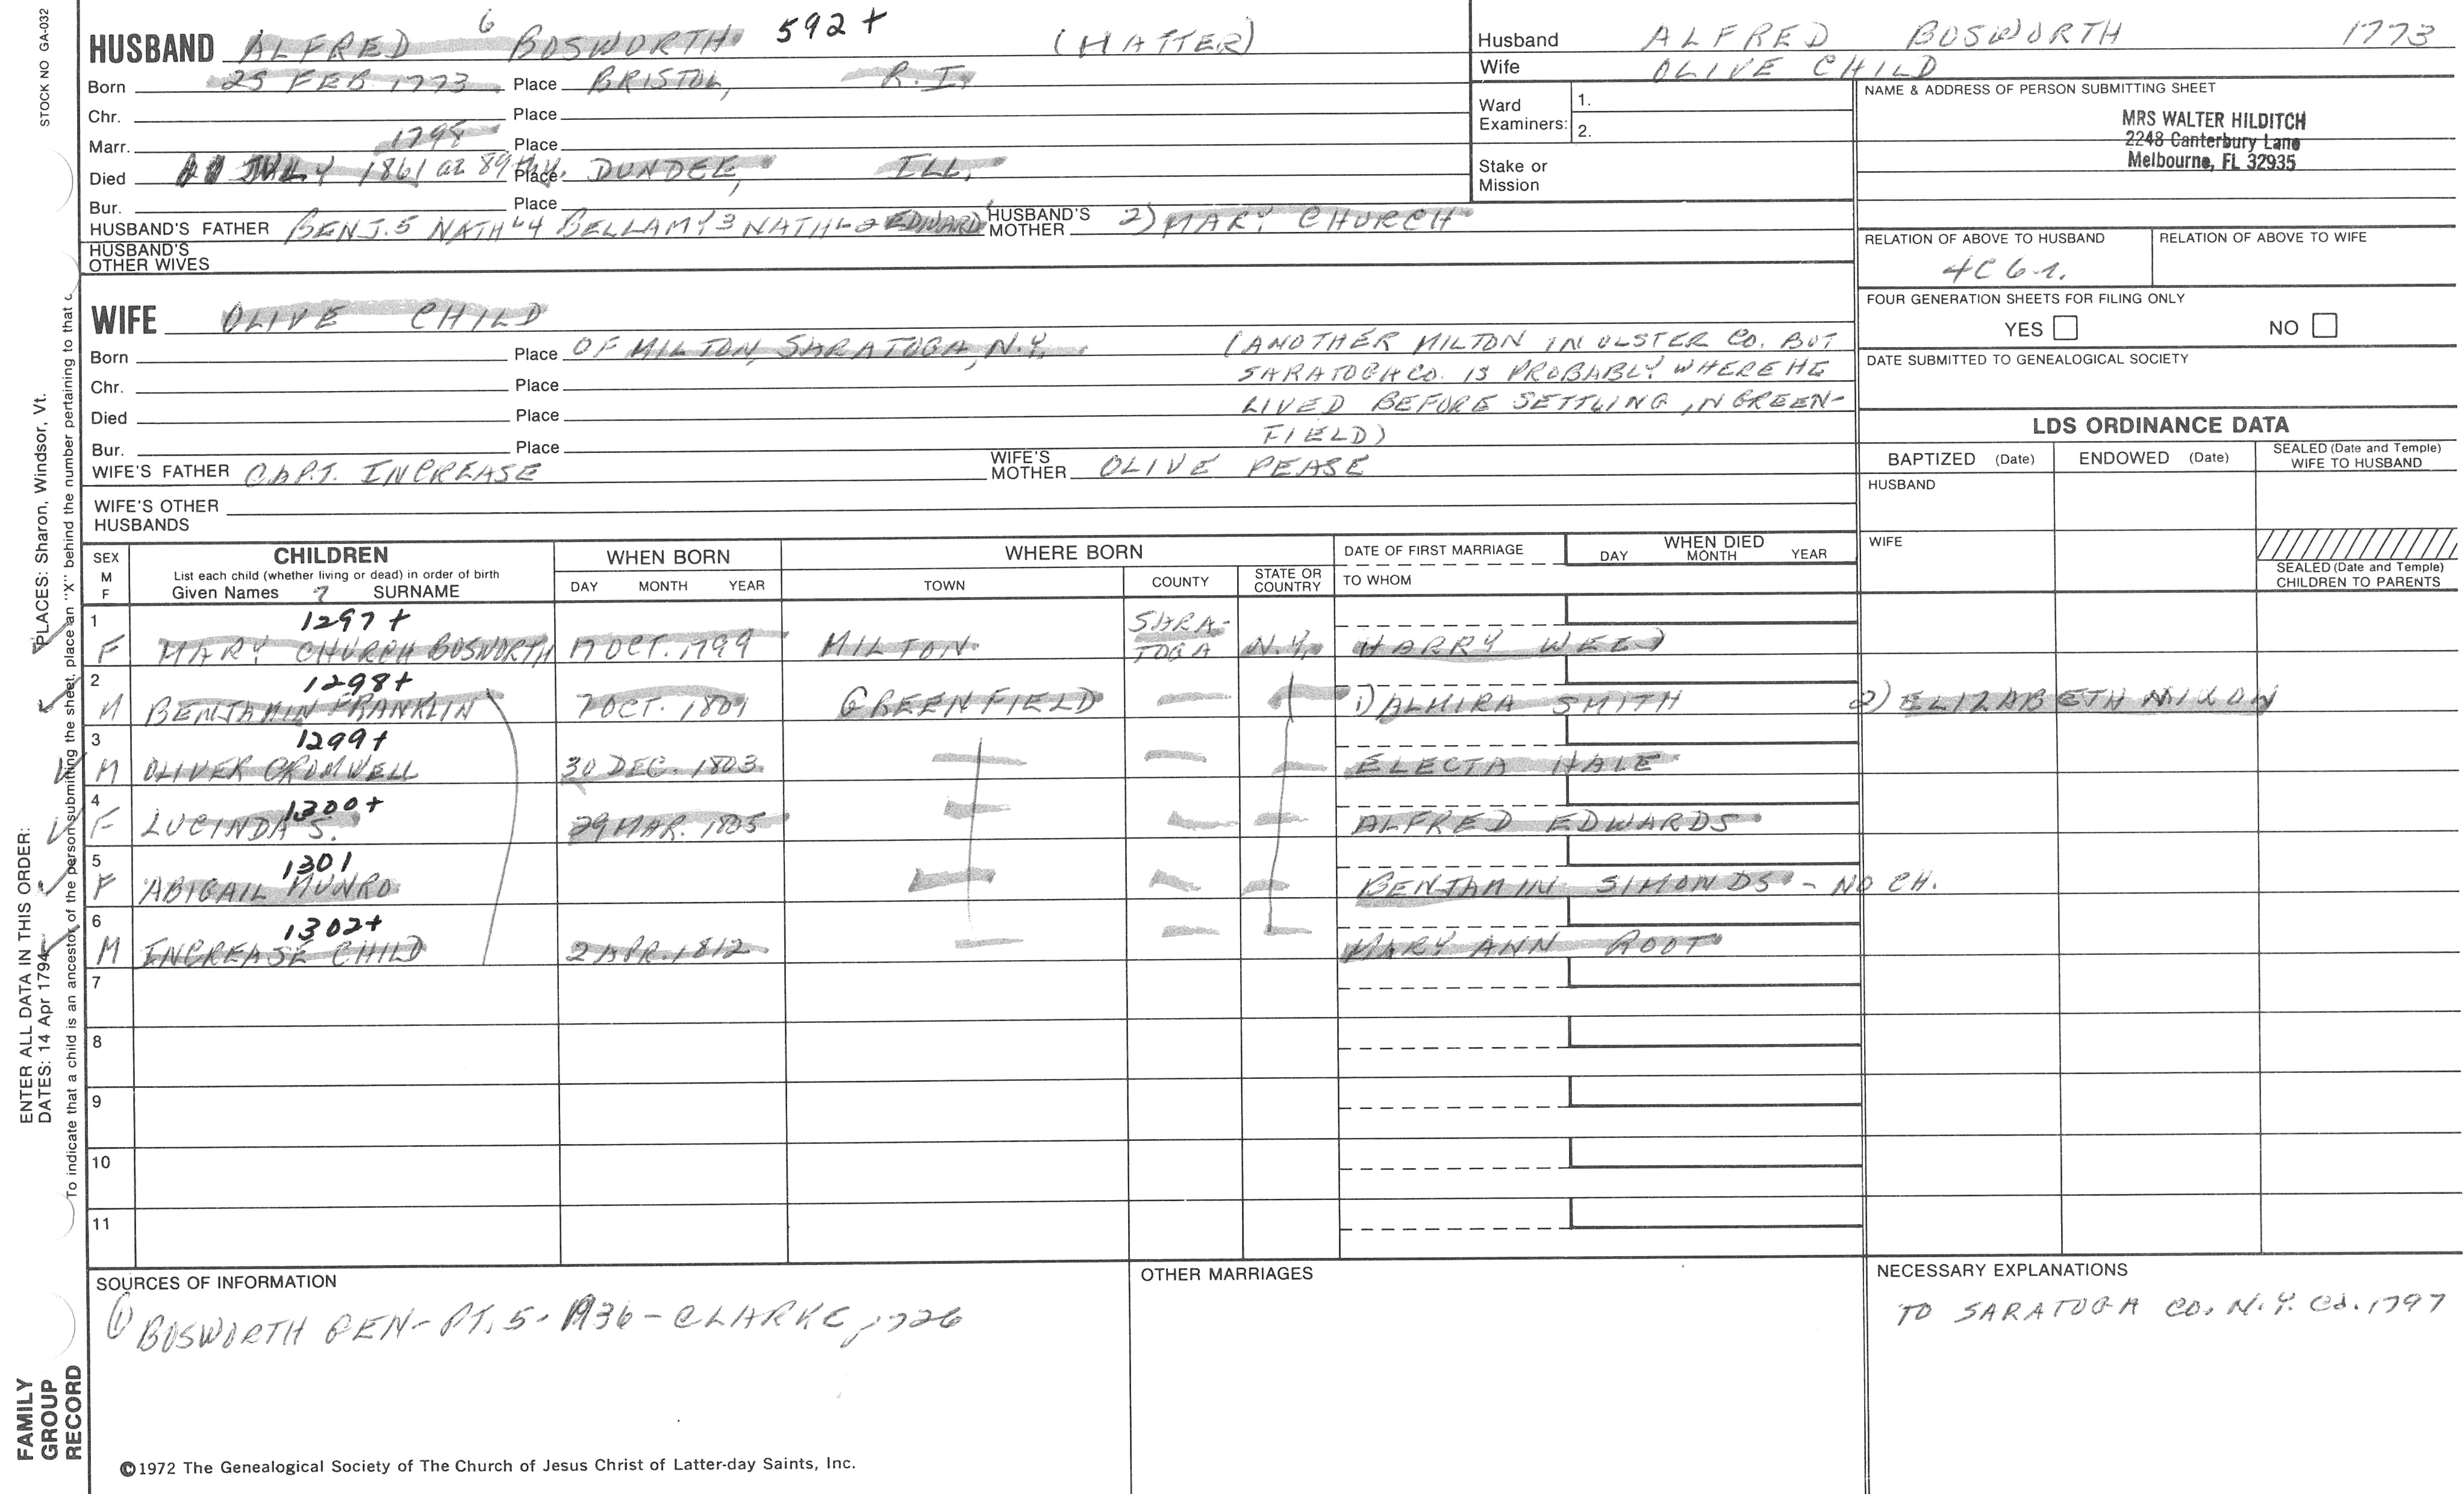 STOCK NO GA-032
HUSBAND ALFRED 6 BOSWORTH 592+ (HATTER)
Born 25 FEB 1773 Place BRISTOL, R.I.
Chr. Place
Marr. 1798 Place
Died JULY 1861 at 89 Place DUNDEE, ILL.
Bur. Place
HUSBAND'S FATHER BENJ.5 NATHL4 BELLAMY3 NATHL2 EDWARD HUSBAND'S MOTHER 2) MARY CHURCH
HUSBAND'S OTHER WIVES
WIFE OLIVE CHILD
Born Place OF MILTON, SARATOGA, N.Y. (ANOTHER MILTON IN ULSTER CO. BUT
Chr. Place SARATOGA CO. IS PROBABLY WHERE HE
Died Place LIVED BEFORE SETTLING IN GREEN-
Bur. Place FIELD)
WIFE'S FATHER CAPT. INCREASE WIFE'S MOTHER OLIVE PEASE
WIFE'S OTHER HUSBANDS
Husband ALFRED BOSWORTH 1773
Wife OLIVE CHILD
Ward Examiners: 1.
2.
Stake or Mission
NAME & ADDRESS OF PERSON SUBMITTING SHEET
MRS WALTER HILDITCH
2248 Canterbury Lane
Melbourne, FL 32935
RELATION OF ABOVE TO HUSBAND RELATION OF ABOVE TO WIFE
4C 6r.
FOUR GENERATION SHEETS FOR FILING ONLY
YES NO
DATE SUBMITTED TO GENEALOGICAL SOCIETY
LDS ORDINANCE DATA
BAPTIZED (Date) ENDOWED (Date) SEALED (Date and Temple) WIFE TO HUSBAND
HUSBAND
WIFE
SEALED (Date and Temple) CHILDREN TO PARENTS
SEX M F CHILDREN WHEN BORN WHERE BORN DATE OF FIRST MARRIAGE WHEN DIED
List each child (whether living or dead) in order of birth DAY MONTH YEAR
Given Names 7 SURNAME DAY MONTH YEAR TOWN COUNTY STATE OR COUNTRY TO WHOM
1 1297+ SARA-
F MARY CHURCH BOSWORTH 17 OCT. 1799 MILTON TOGA N.Y. HARRY WEED
2 1298+
M BENJAMIN FRANKLIN 7 OCT. 1801 GREENFIELD 1) ALMIRA SMITH 2) ELIZABETH NIXON
3 1299+
M OLIVER CROMWELL 30 DEC. 1803 ELECTA HALE
4 1300+
F LUCINDA S. 29 MAR. 1805 ALFRED EDWARDS
5 1301
F ABIGAIL MUNRO BENJAMIN SIMONDS - NO CH.
6 1302+
M INCREASE CHILD 2 APR. 1812 MARY ANN ROOT
7
8
9
10
11
SOURCES OF INFORMATION
① BOSWORTH GEN- PT. 5 - 1936 - CLARKE,
OTHER MARRIAGES
NECESSARY EXPLANATIONS
TO SARATOGA CO. N.Y. Ca. 1797
©1972 The Genealogical Society of The Church of Jesus Christ of Latter-day Saints, Inc.
FAMILY
GROUP
RECORD
ENTER ALL DATA IN THIS ORDER:
DATES: 14 Apr 1794
PLACES: Sharon, Windsor, Vt.
To indicate that a child is an ancestor of the person submitting the sheet, place an "X" behind the number pertaining to that c